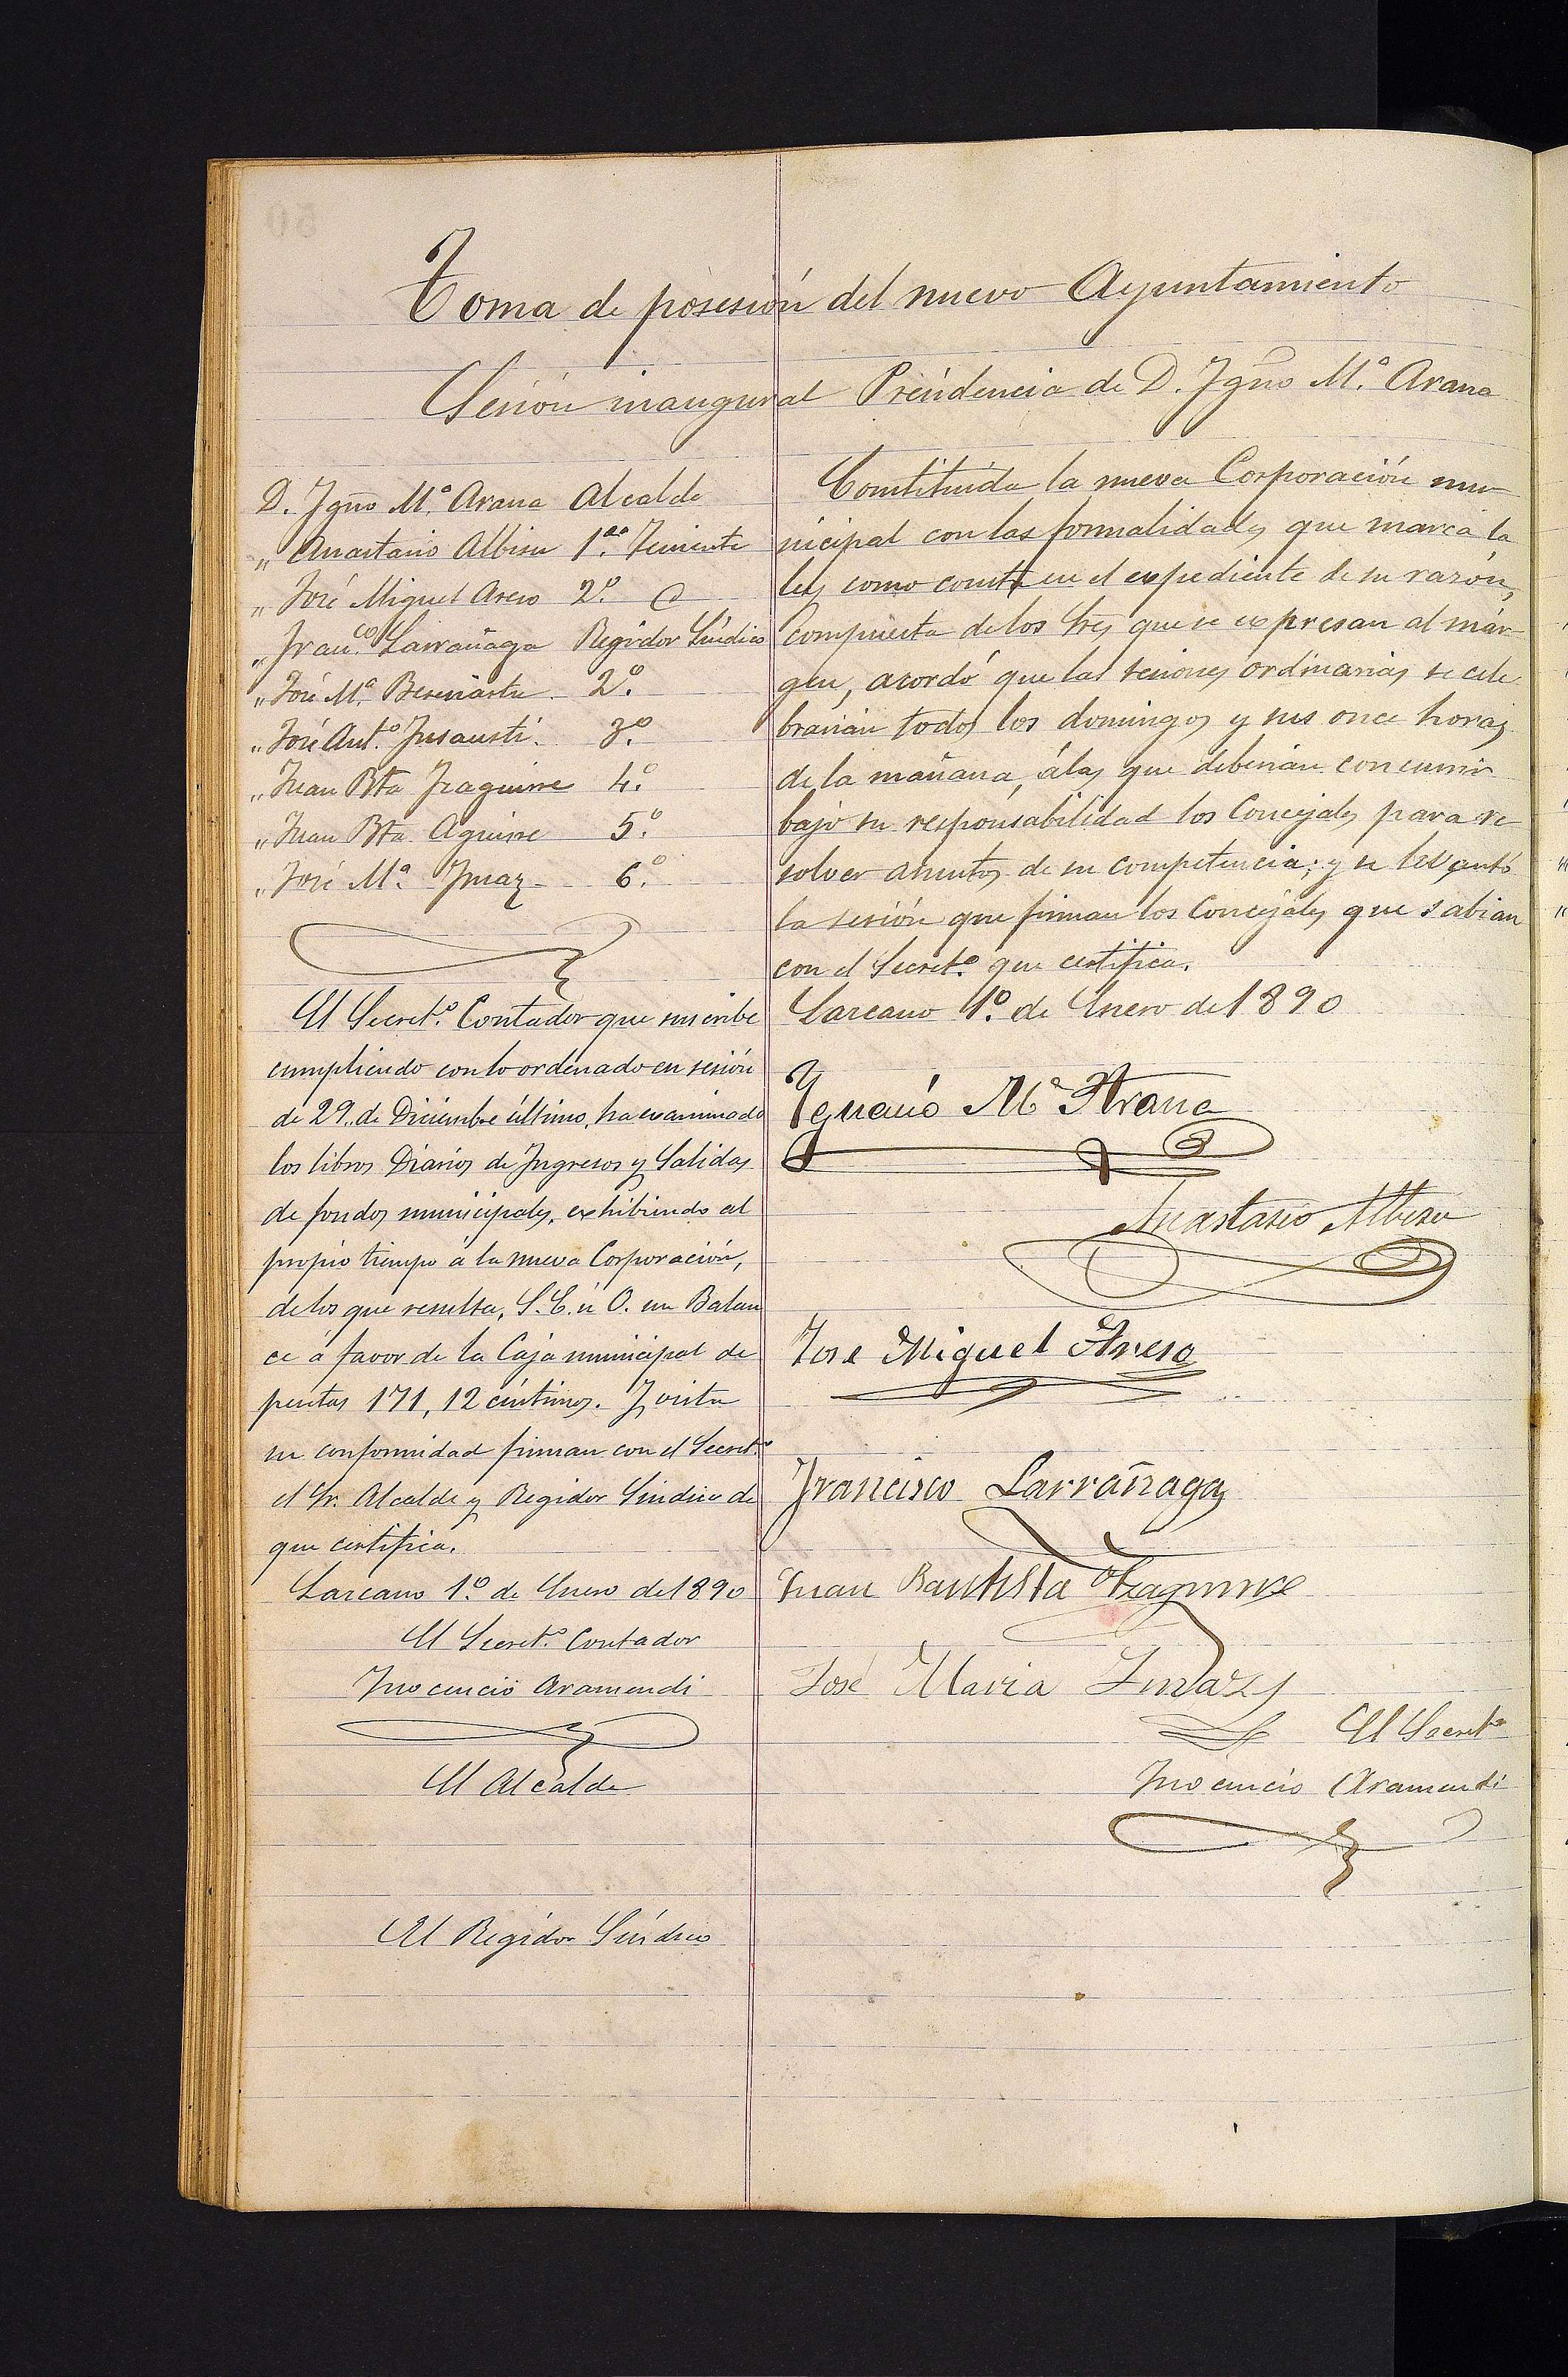 Toma de posesión del nuevo Ayuntamiento
Sesión inaugural Presidencia de D. Ygno M.ª Arana
D. Ygno M.ª Arana Alcalde
" Anastasio Albisu 1.er Teniente
" José Miguel Areso 2.º
" Fran.co Larrañaga Regidor Síndico
" José M.ª 2.º
" José Ant.º Insausti. 3.º
" Juan Bta Iraguirre 4.º
" Juan Bta Aguirre 5.º
" José M.ª Ymaz 6.º
El Secret.º Contador que suscribe
cumpliendo con lo ordenado en sesión
de 29, de Diciembre último, ha examinado
los libros Diarios de Ingresos y Salidas
de fondos municipales, exhibiendo al
propio tiempo á la nueva Corporación,
de los que resulta, S. E. ú O. un Balan
ce á favor de la Caja municipal de
pesetas 171,12 céntimos. Y vista
su conformidad firman con el Secret.º
el Sr. Alcalde y Regidor Síndico de
que certifica.
Lazcano 1.º de Enero de 1890
El Secret.º Contador
Inocencio Aramendi
El Alcalde
El Regidor Síndico
Constituida la nueva Corporación mu
nicipal con las formalidades que marca la
ley como consta en el expediente de su razón,
compuesta de los Sres que se expresan al már
gen, acordó que las sesiones ordinarias se cele
brarían todos los domingos y sus once horas
de la mañana, á las que deberían concurrir
bajo su responsabilidad los Concejales para re
solver asuntos de su competencia; y se levantó
la sesión que firman los Concejales que sabian
con el Secret.º que certifica.
Lazcano 1.º de Enero de 1890
Ygnacio M.ª Arana
Anastasio Albisu
Jose Miguel Areso
Francisco Larrañaga
Juan Bautista Yraguirre
José Maria Imaz
El Secret.º
Inocencio Aramendi